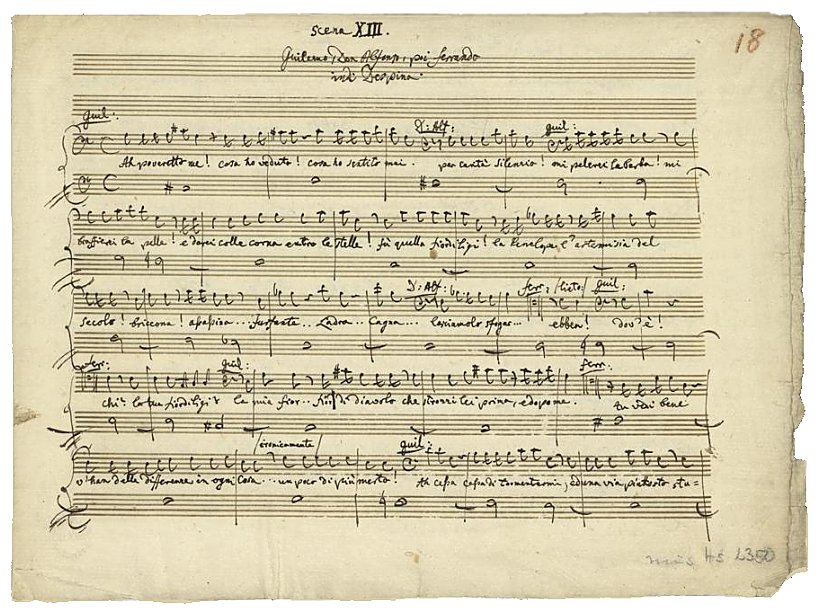 scena XIII.
18
Guilelmo, Don Alfonso, poi Ferrando
indi Despina.
guil: D: Alf: guil:
Ah poveretto me! cosa ho veduto! cosa ho sentito mai. per carità silenzio! mi pelerei la barba! mi
graffierei la pelle! e darei colle corna entro le stelle! fù quella fiordiligi! la Penelope, l'artemisia del
D: Alf: ferr: /:lieto:/ guil:
secolo! briccona! assassina... furfante... Ladra... Cagna... lasciamolo sfogar... ebben! dov'è!
ferr: guil: ferr:
chi? la tua fiordiligi? la mia fior... fior di diavolo che strozzi lei prima, e dopo me. tu vedi bene
/ironicamente/ guil:
v'han delle differenze in ogni cosa... un poco di più merto! Ah cessa cessa di tormentarmi, ed una via piuttosto stu=
HS 1350